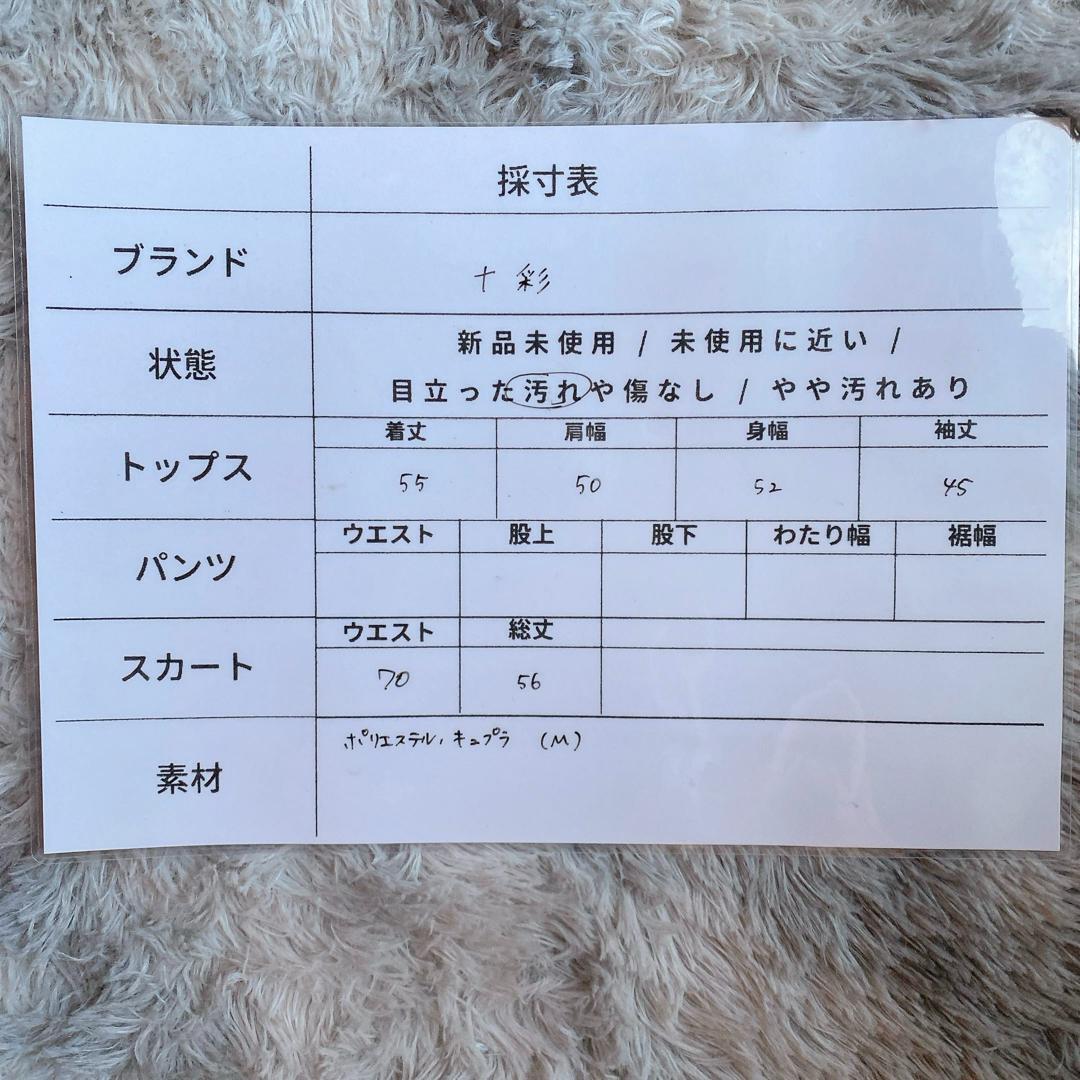 採寸表
ブランド
十彩
状態
新品未使用 / 未使用に近い /
目立った汚れや傷なし / やや汚れあり
トップス
着丈 肩幅 身幅 袖丈
55 50 52 45
パンツ
ウエスト 股上 股下 わたり幅 裾幅
スカート
ウエスト 総丈
70 56
素材
ポリエステル、キュプラ (M)